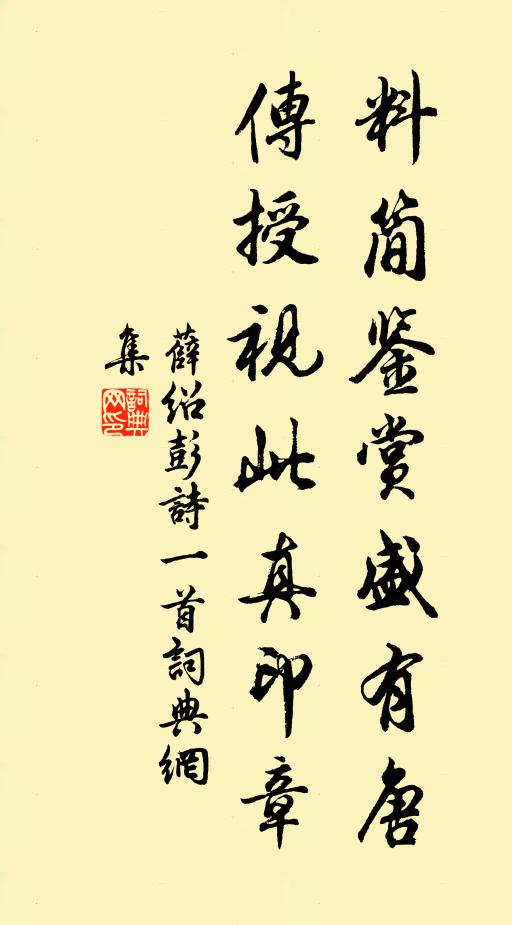 料简鉴赏盛有唐
傳授視此真印章
薛绍彭詩一首詞典網
集
詞典
网印